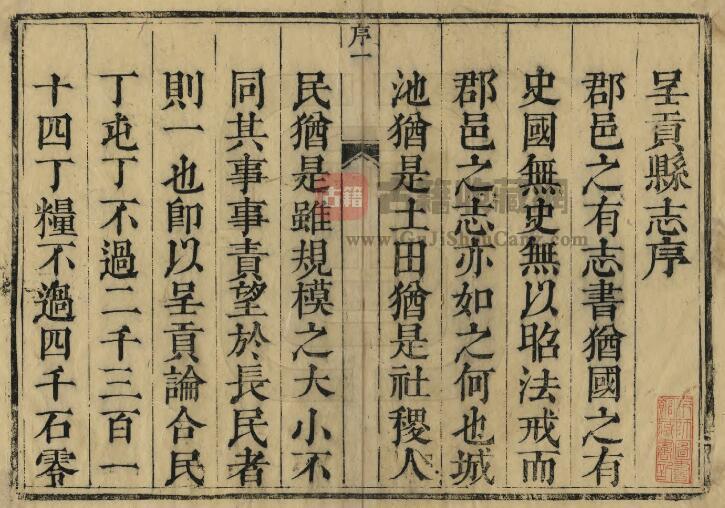 呈貢縣志序
郡邑之有志書猶國之有
史國無史無以昭法戒而
郡邑之志亦如之何也城
池猶是土田猶是社稷人
序一
民猶是雖規模之大小不
同其事事責望於長民者
則一也卽以呈貢論合民
丁屯丁不過二千三百一
十四丁糧不過四千石零
古籍
www.GuJiShuCang.com